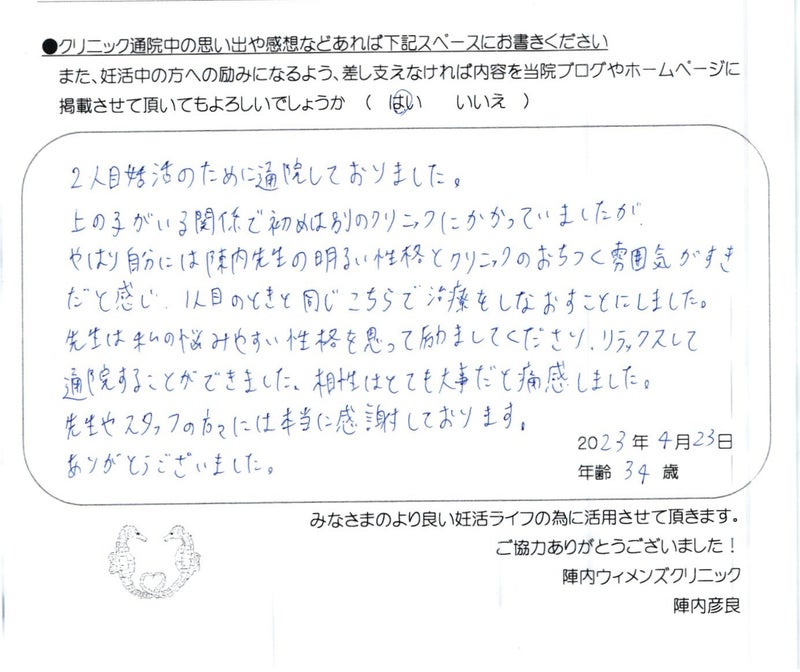 ●クリニック通院中の思い出や感想などあれば下記スペースにお書きください
また、妊活中の方への励みになるよう、差し支えなければ内容を当院ブログやホームページに
掲載させて頂いてもよろしいでしょうか （ はい いいえ ）
2人目妊活のために通院しておりました。
上の子がいる関係で初めは別のクリニックにかかっていましたが、
やはり自分には陣内先生の明るい性格とクリニックのおちつく雰囲気がすき
だと感じ、1人目のときと同じこちらで治療をしなおすことにしました。
先生は私の悩みやすい性格を思って励ましてくださり、リラックスして
通院することができました。相性はとても大事だと痛感しました。
先生やスタッフの方々には本当に感謝しております。
ありがとうございました。
2023年4月23日
年齢 34 歳
みなさまのより良い妊活ライフの為に活用させて頂きます。
ご協力ありがとうございました！
陣内ウィメンズクリニック
陣内彦良